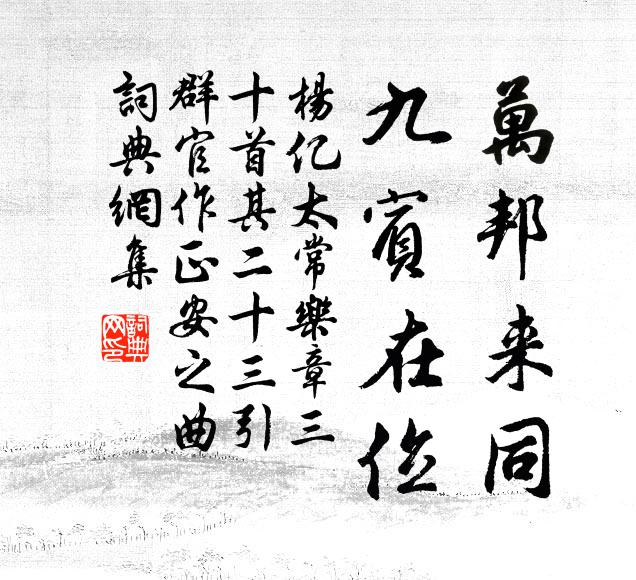 萬邦来同
九賓在位
楊亿太常樂章三
十首其二十三引
群官作正安之曲
詞典網集
詞典
网印